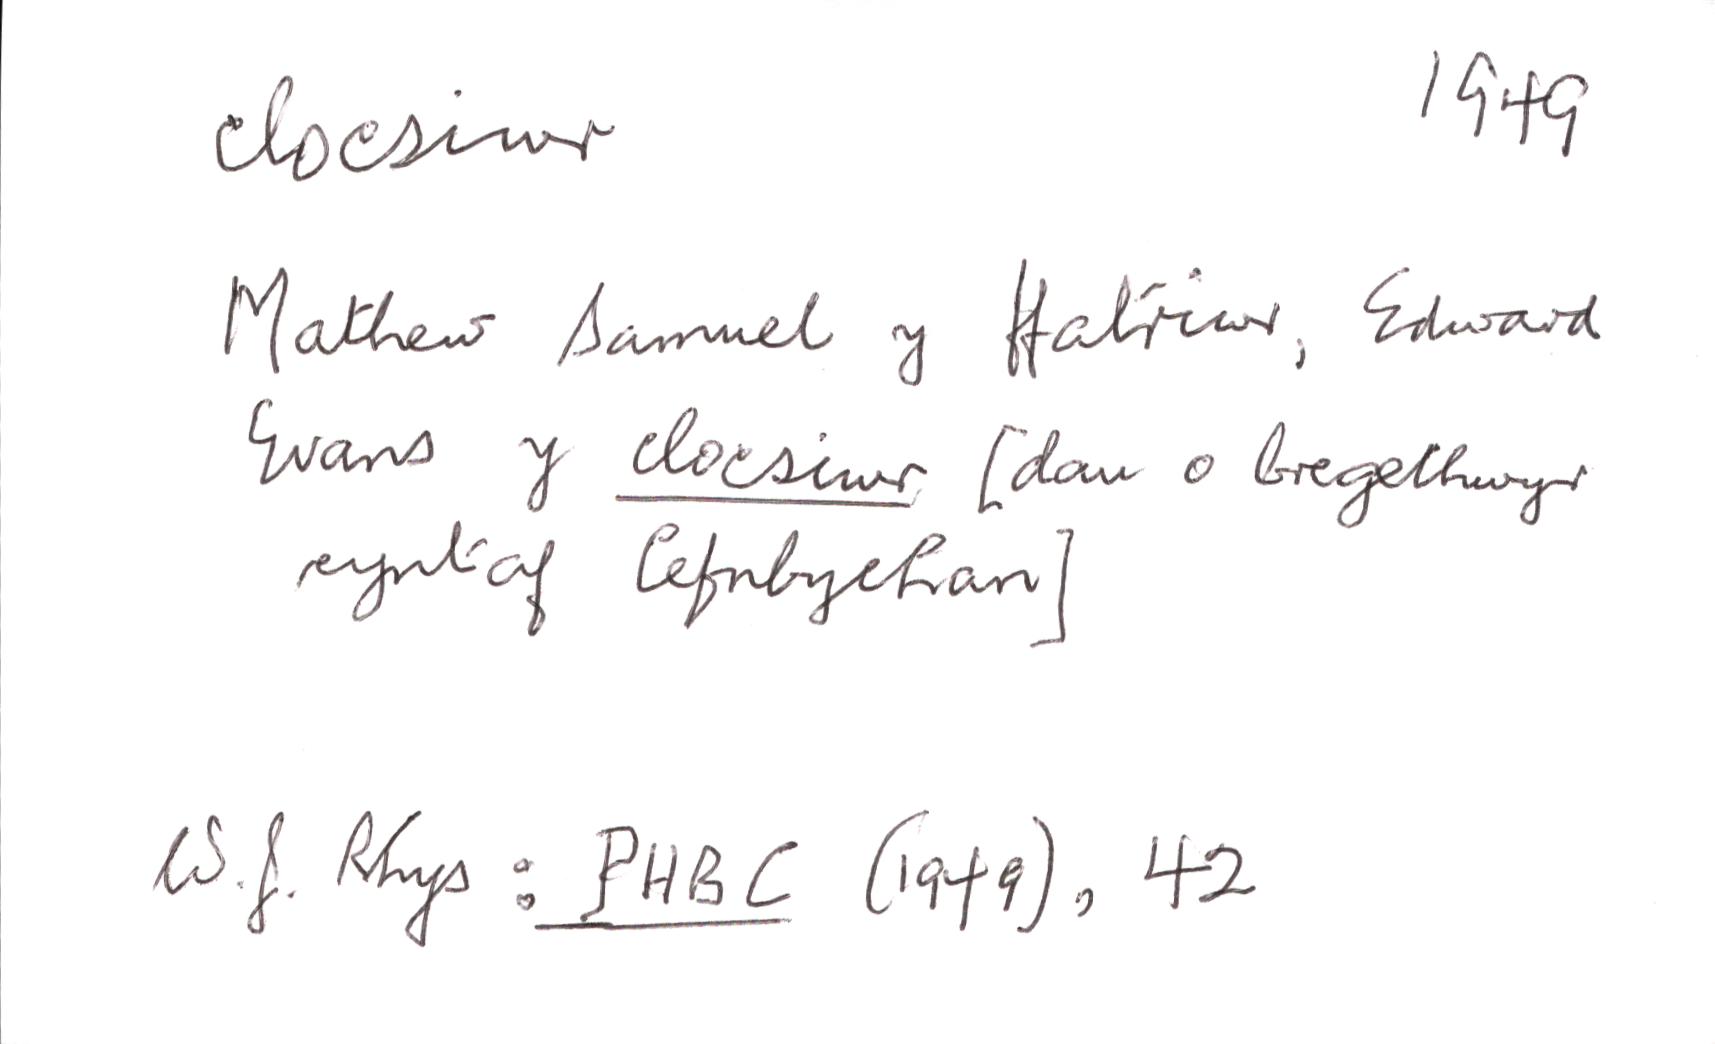 clocsiwr 1949
Mathew Samuel y Hatriwr, Edward
Evans y clocsiwr [dau o bregethwyr
cyntaf Cefnbychan]
W.J. Rhys : PHBC (1949), 42